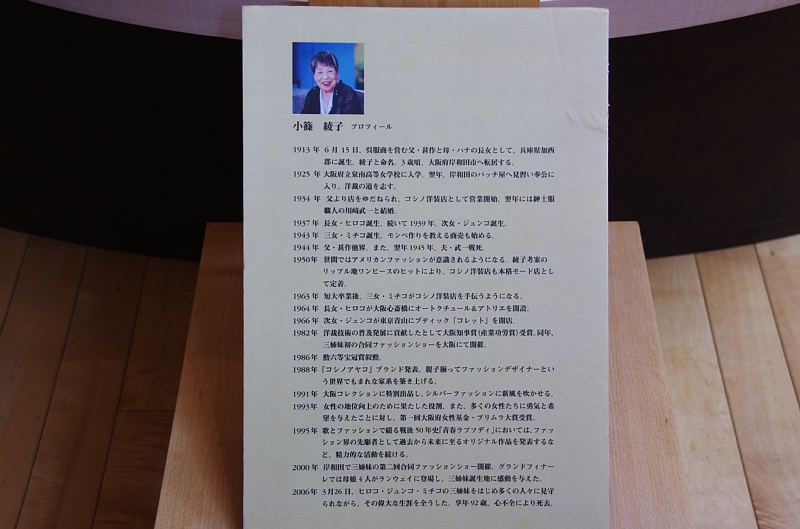 小篠 綾子 プロフィール
1913年 6月15日、呉服商を営む父・甚作と母・ハナの長女として、兵庫県加西
郡に誕生。綾子と命名。3歳頃、大阪府岸和田市へ転居する。
1925年 大阪府立泉南高等女学校に入学。翌年、岸和田のパッチ屋へ見習い奉公に
入り、洋裁の道を志す。
1934年 父より店をゆだねられ、コシノ洋装店として営業開始。翌年には紳士服
職人の川崎武一と結婚。
1937年 長女・ヒロコ誕生。続いて1939年、次女・ジュンコ誕生。
1943年 三女・ミチコ誕生。モンペ作りを教える商売も始める。
1944年 父・甚作他界。また、翌年1945年、夫・武一戦死。
1950年 世間ではアメリカンファッションが意識されるようになる。綾子考案の
リップル地ワンピースのヒットにより、コシノ洋装店も本格モード店とし
て定着。
1963年 短大卒業後、三女・ミチコがコシノ洋装店を手伝うようになる。
1964年 長女・ヒロコが大阪心斎橋にオートクチュール&アトリエを開設。
1966年 次女・ジュンコが東京青山にブティック「コレット」を開店。
1982年 洋裁技術の普及発展に貢献したとして大阪知事賞(産業功労賞)受賞。同年、
三姉妹初の合同ファッションショーを大阪にて開催。
1986年 勲六等宝冠賞叙勲。
1988年 「コシノアヤコ」ブランド発表。親子揃ってファッションデザイナーとい
う世界でもまれな家系を築き上げる。
1991年 大阪コレクションに特別出品し、シルバーファッションに新風を吹かせる。
1993年 女性の地位向上のために果たした役割、また、多くの女性たちに勇気と希
望を与えたことに対し、第一回大阪府女性基金・プリムラ大賞受賞。
1995年 歌とファッションで綴る戦後50年史「青春ラプソディ」においては、ファッ
ション界の先駆者として過去から未来に至るオリジナル作品を発表するな
ど、精力的な活動を続ける。
2000年 岸和田で三姉妹の第二回合同ファッションショー開催。グランドフィナー
レでは母娘4人がランウェイに登場し、三姉妹誕生地に感動を与えた。
2006年 3月26日、ヒロコ・ジュンコ・ミチコの三姉妹をはじめ多くの人々に見守
られながら、その偉大な生涯を全うした。享年92歳、心不全により死去。